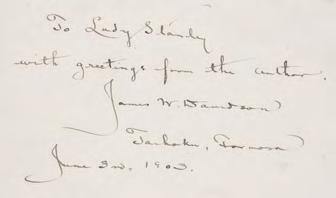 To Lady Stanley
with greetings from the author.
James W. Davidson
Taihoku, Formosa
June 3rd, 1903.